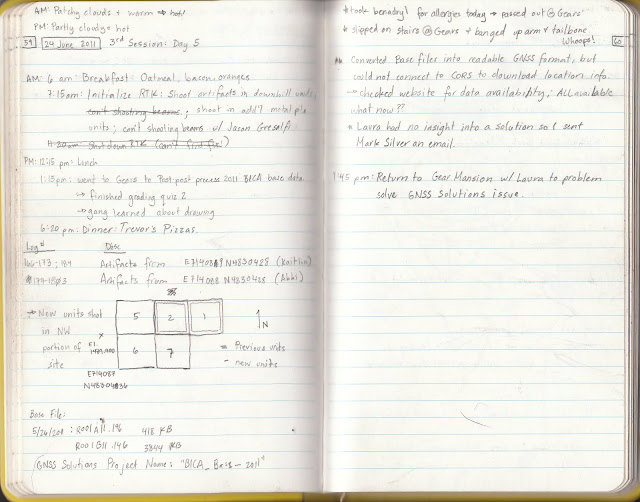 AM: Patchy clouds + warm → hot!
PM: Partly cloudy + hot
59 24 June 2011 3rd Session: Day 5
AM: 6 am: Breakfast: Oatmeal, bacon, oranges
7:15am: Initialize RTK: Shoot artifacts in downhill units,
can't shooting beams; shoot in add'l metal pile
units; con't shooting beams w/ Jason
11:20am: Shut down RTK
PM: 12:15 pm: Lunch
1:15pm: went to Gears to post process 2011 BICA base data.
↳ finished grading quiz 2
↳ gang learned about drawing
6:20 pm: Dinner: Trevor's Pizzas.
Log# Disc
166-173; 184 Artifacts from E714089 N4830428 (Kaitlin)
Artifacts from E714088 N4830428 (Abbi)
→ New units shot
in NW
portion of
site
5 2 1
6 7
N
E714087
N4830436
= Previous units
- new units
Base File:
5/26/2011: R001A11.146 418 KB
R001B11.146 3844 KB
GNSS Solutions Project Name: "BICA_Base_2011"
* took benadryl for allergies today → passed out @ Gears
* slipped on stairs @ Gears + banged up arm + tailbone
Whoops!
60
AM: Converted Base files into readable GNSS format, but
could not connect to CORS to download location info.
→ checked website for data availability; ALL available
what now??
* Laura had no insight into a solution so I sent
Mark Silver an email.
1:45 pm: Return to Gear Mansion w/ Laura to problem
solve GNSS Solutions issue.